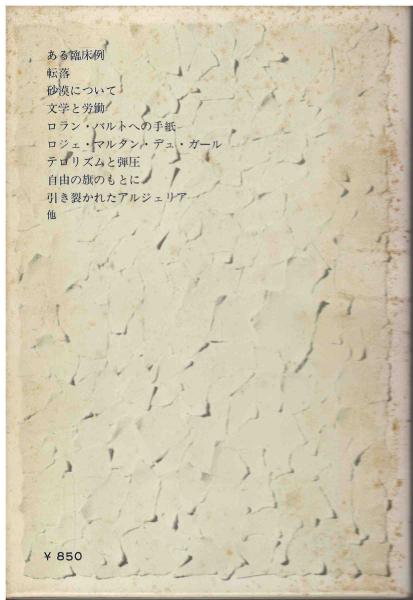 ある臨床例
転落
砂漠について
文学と労働
ロラン・バルトへの手紙
ロジェ・マルタン・デュ・ガール
テロリズムと弾圧
自由の旗のもとに
引き裂かれたアルジェリア
他
¥ 850